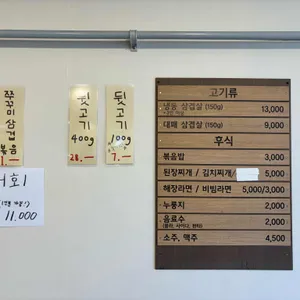 쭈꾸미삼겹
볶음
뒷고기
400g
28.—
뒷고기
100g
7.—
11.000
고기류
냉동 삼겹살 (150g) 13,000
대패 삼겹살 (150g) 9,000
후식
볶음밥 3,000
된장찌개 / 김치찌개/ 5,000
해장라면 / 비빔라면 5,000/3,000
누룽지 2,000
음료수 2,000
(콜라, 사이다, 환타)
소주, 맥주 4,500